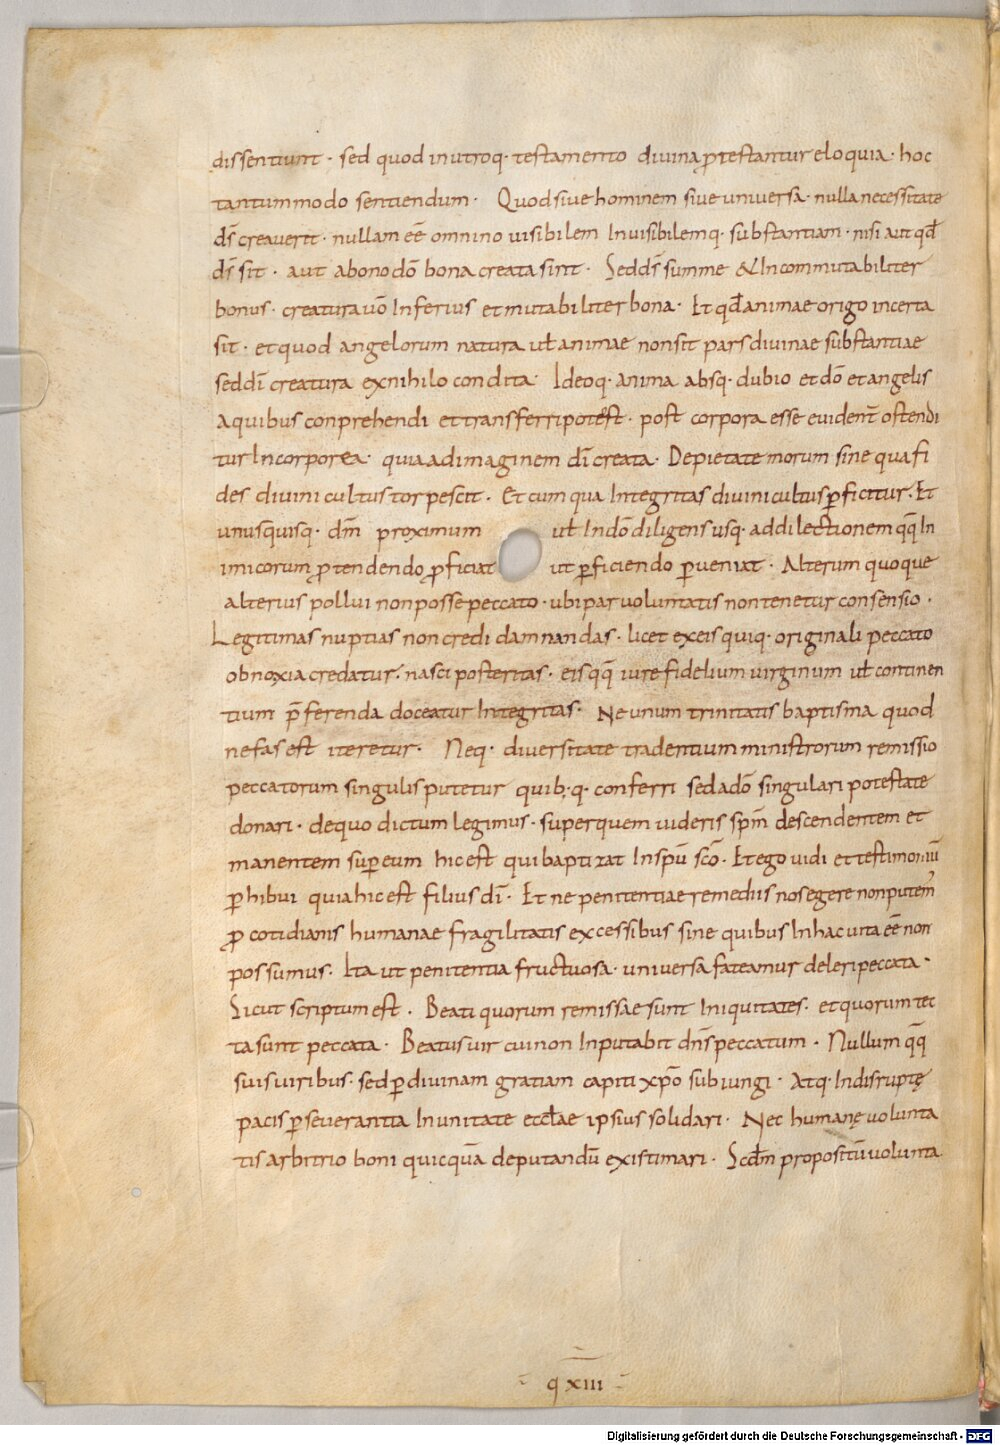 dissentiunt · sed quod inutroq· testamento divina ꝓtestantur eloquia · hoc
tantummodo sentiendum · Quod sive hominem sive universa · nulla necessitate
ds̄ creaverit · nullam eē omnino visibilem Invisibilemq· substantiam · nisi aut qđ
ds̄ sit · aut abono dō bona creata sint · Sed ds̄ summe & Incommutabiliter
bonus · creatura ūo Inferius et mutabiliter bona · Et qđ animae origo incerta
sit · et quod angelorum natura uł animae non sit pars divinae substantiae
sed dī creatura ex nihilo condita · Ideoq· anima absq· dubio et dō et angelis
a quibus conprehendi et transferri potest · post corpora esse evident̄ ostendi
tur Incorporea · quia ad imaginem dī creata · De pietate morum sine qua fi
des divini cultus torpescit · Et cum qua Integritas divini cultus ꝑficitur · Et
unusquisq· dm̄ proximum uł In dō diligens usq· ad dilectionem qq̄ In
imicorum ꝓtendendo ꝓficiat ut ꝑficiendo ꝑveniat · Alterum quoque
alterius pollui non posse peccato · ubi par voluntatis non tenetur consensio ·
Legitimas nuptias non credi damnandas · licet ex eis quiq· originali peccato
obnoxia credatur · nasci posteritas · eisqq̄ iure fidelium virginum uł continen
tium p̄ferenda doceatur Integritas · Ne unum trinitatis baptisma quod
nefas est iteretur · Neq· diversitate tradentium ministrorum remissio
peccatorum singulis putetur quib;·q· conferri sed a dō singulari potestate
donari · de quo dictum legimus · super quem videris spm̄ descendentem et
manentem suꝑ eum hic est qui baptizat In spū scō · Et ego vidi et testimoniū
ꝑhibui quia hic est filius dī · Et ne penitentiae remediis nos egere non putem̄
ꝓ cotidianis humanae fragilitatis excessibus sine quibus In hac vita eē non
possumus · Ita ut penitentia fructuosa · universa fateamur deleri peccata ·
Sicut scriptum est · Beati quorum remissae sunt Iniquitates · et quorum tec
ta sunt peccata · Beatus vir cui non Inputabit dn̄s peccatum · Nullum qq̄
suis viribus · sed ꝑ divinam gratiam capiti xp̄o subiungi · Atq· Indisruptę
pacis ꝑseverantia In unitate eccłae ipsius solidari · Nec humanę volunta
tis arbitrio boni quicquā deputandū existimari · Scđm propositū volunta
q xiii
Digitalisierung gefördert durch die Deutsche Forschungsgemeinschaft - DFG